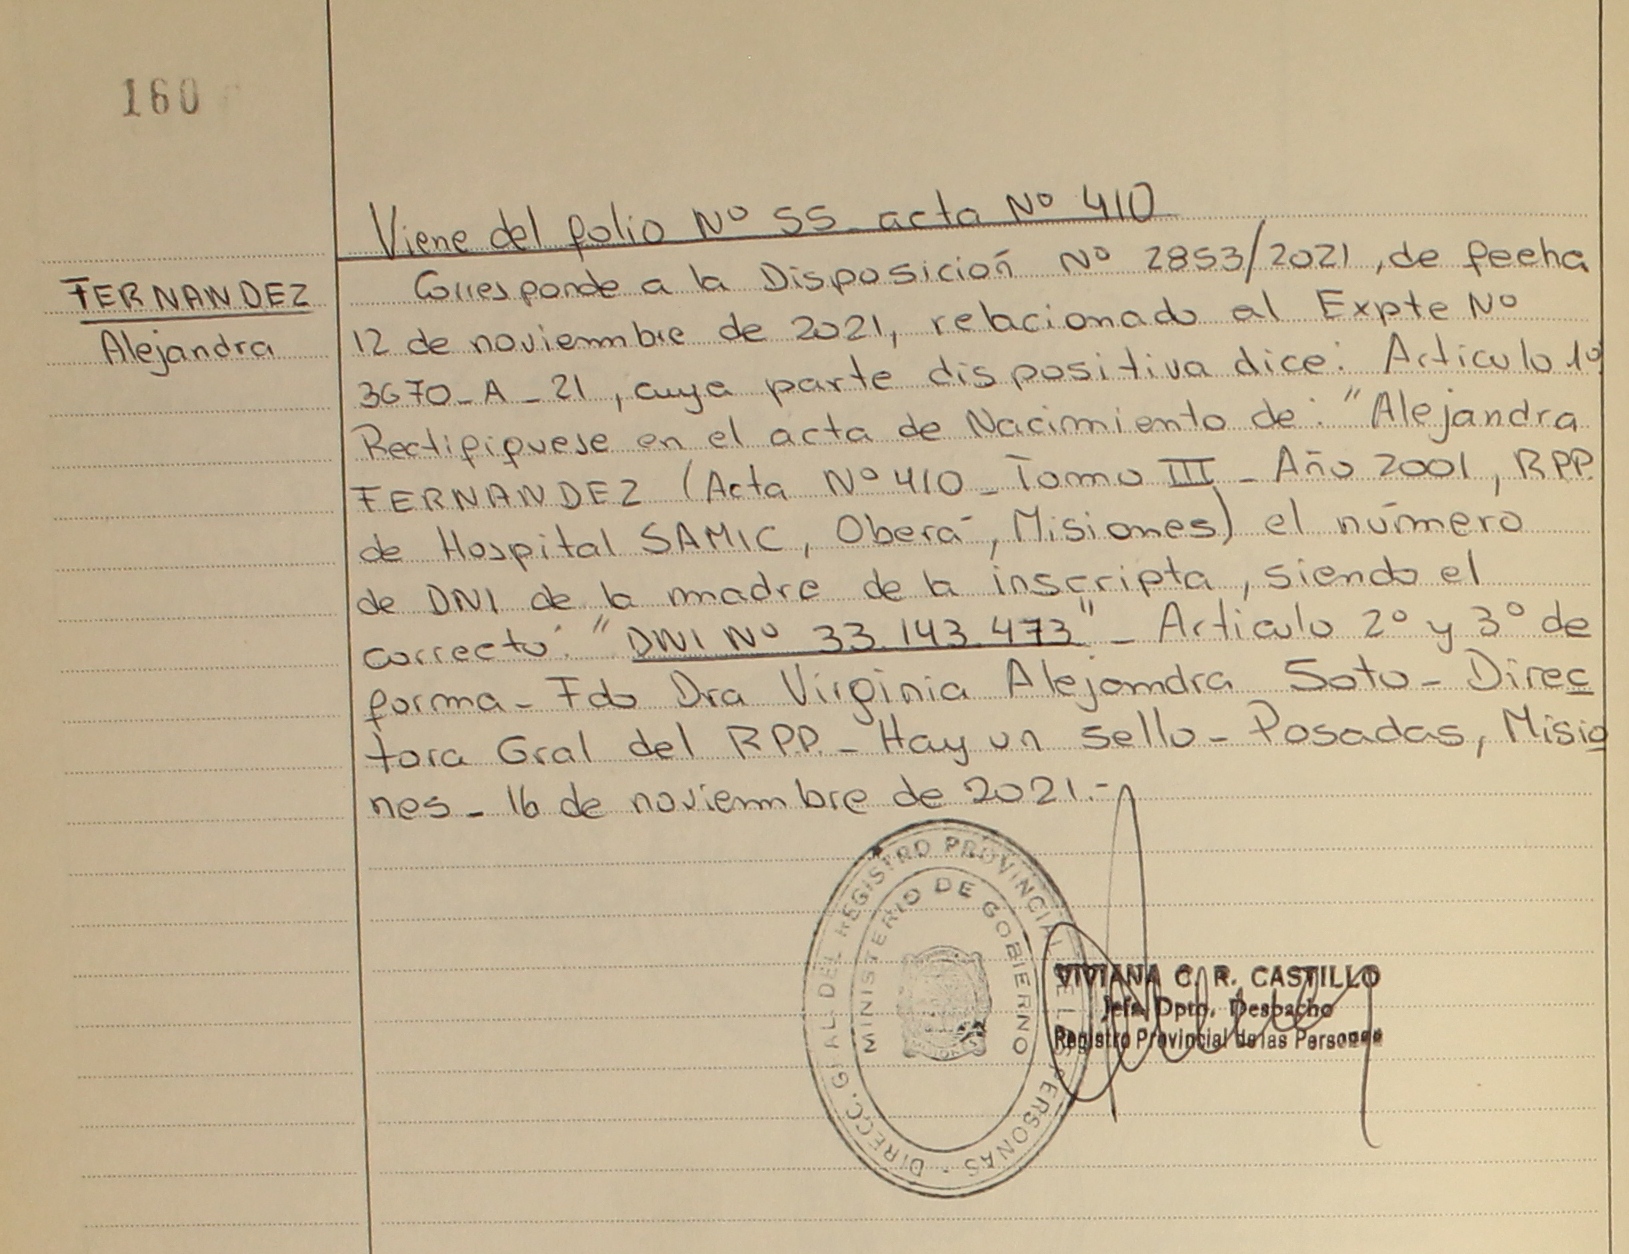 160
Viene del folio Nº 55 acta Nº 410
FERNANDEZ
Alejandra
Corresponde a la Disposición Nº 2853/2021, de fecha
12 de noviembre de 2021, relacionado al Expte Nº
3670_A_21, cuya parte dispositiva dice: Artículo 1º
Rectifíquese en el acta de Nacimiento de: "Alejandra
FERNANDEZ (Acta Nº 410_Tomo III_Año 2001, RPP.
de Hospital SAMIC, Oberá, Misiones) el número
de DNI de la madre de la inscripta, siendo el
correcto: "DNI Nº 33.143.473"_ Artículo 2º y 3º de
forma_Fdo Dra Virginia Alejandra Soto_Direc
tora Gral del RPP._Hay un sello_Posadas, Misio
nes_16 de noviembre de 2021.-
DIRECC. GRAL. DEL REGISTRO PROVINCIAL DE LAS PERSONAS -
MINISTERIO DE GOBIERNO
VIVIANA C. R. CASTILLO
Jefa Dpto. Despacho
Registro Provincial de las Personas